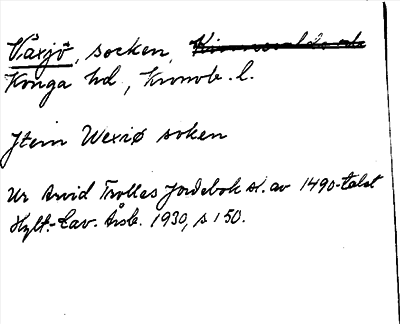 Växjö, socken,
Konga hd, Kronob. l.
Jtem Wexiø soken
Ur Arvid Trolles Jordebok sl. av 1490-talet
Hylt.-Cav. Årsb. 1930, s 150.